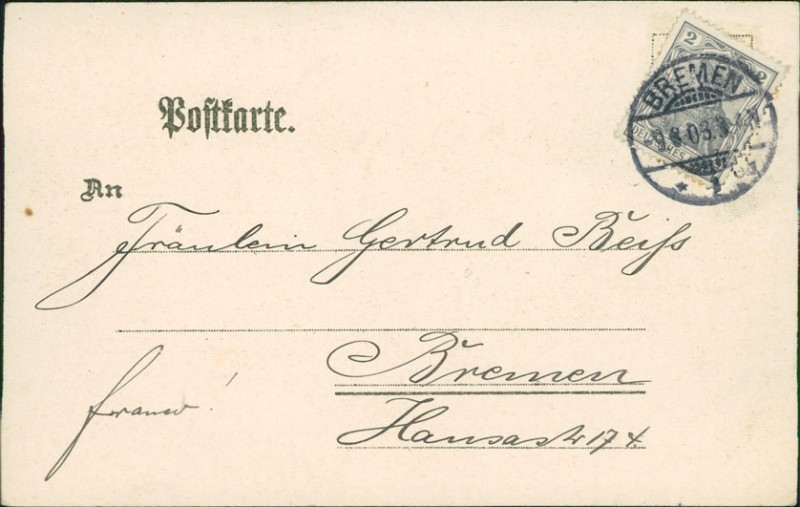 Postkarte.
An
2 2
DEUTSCHES
BREMEN
9.8.03.
Fräulein Gertrud Beiß
Bremen
franco!
Hansastr 174.